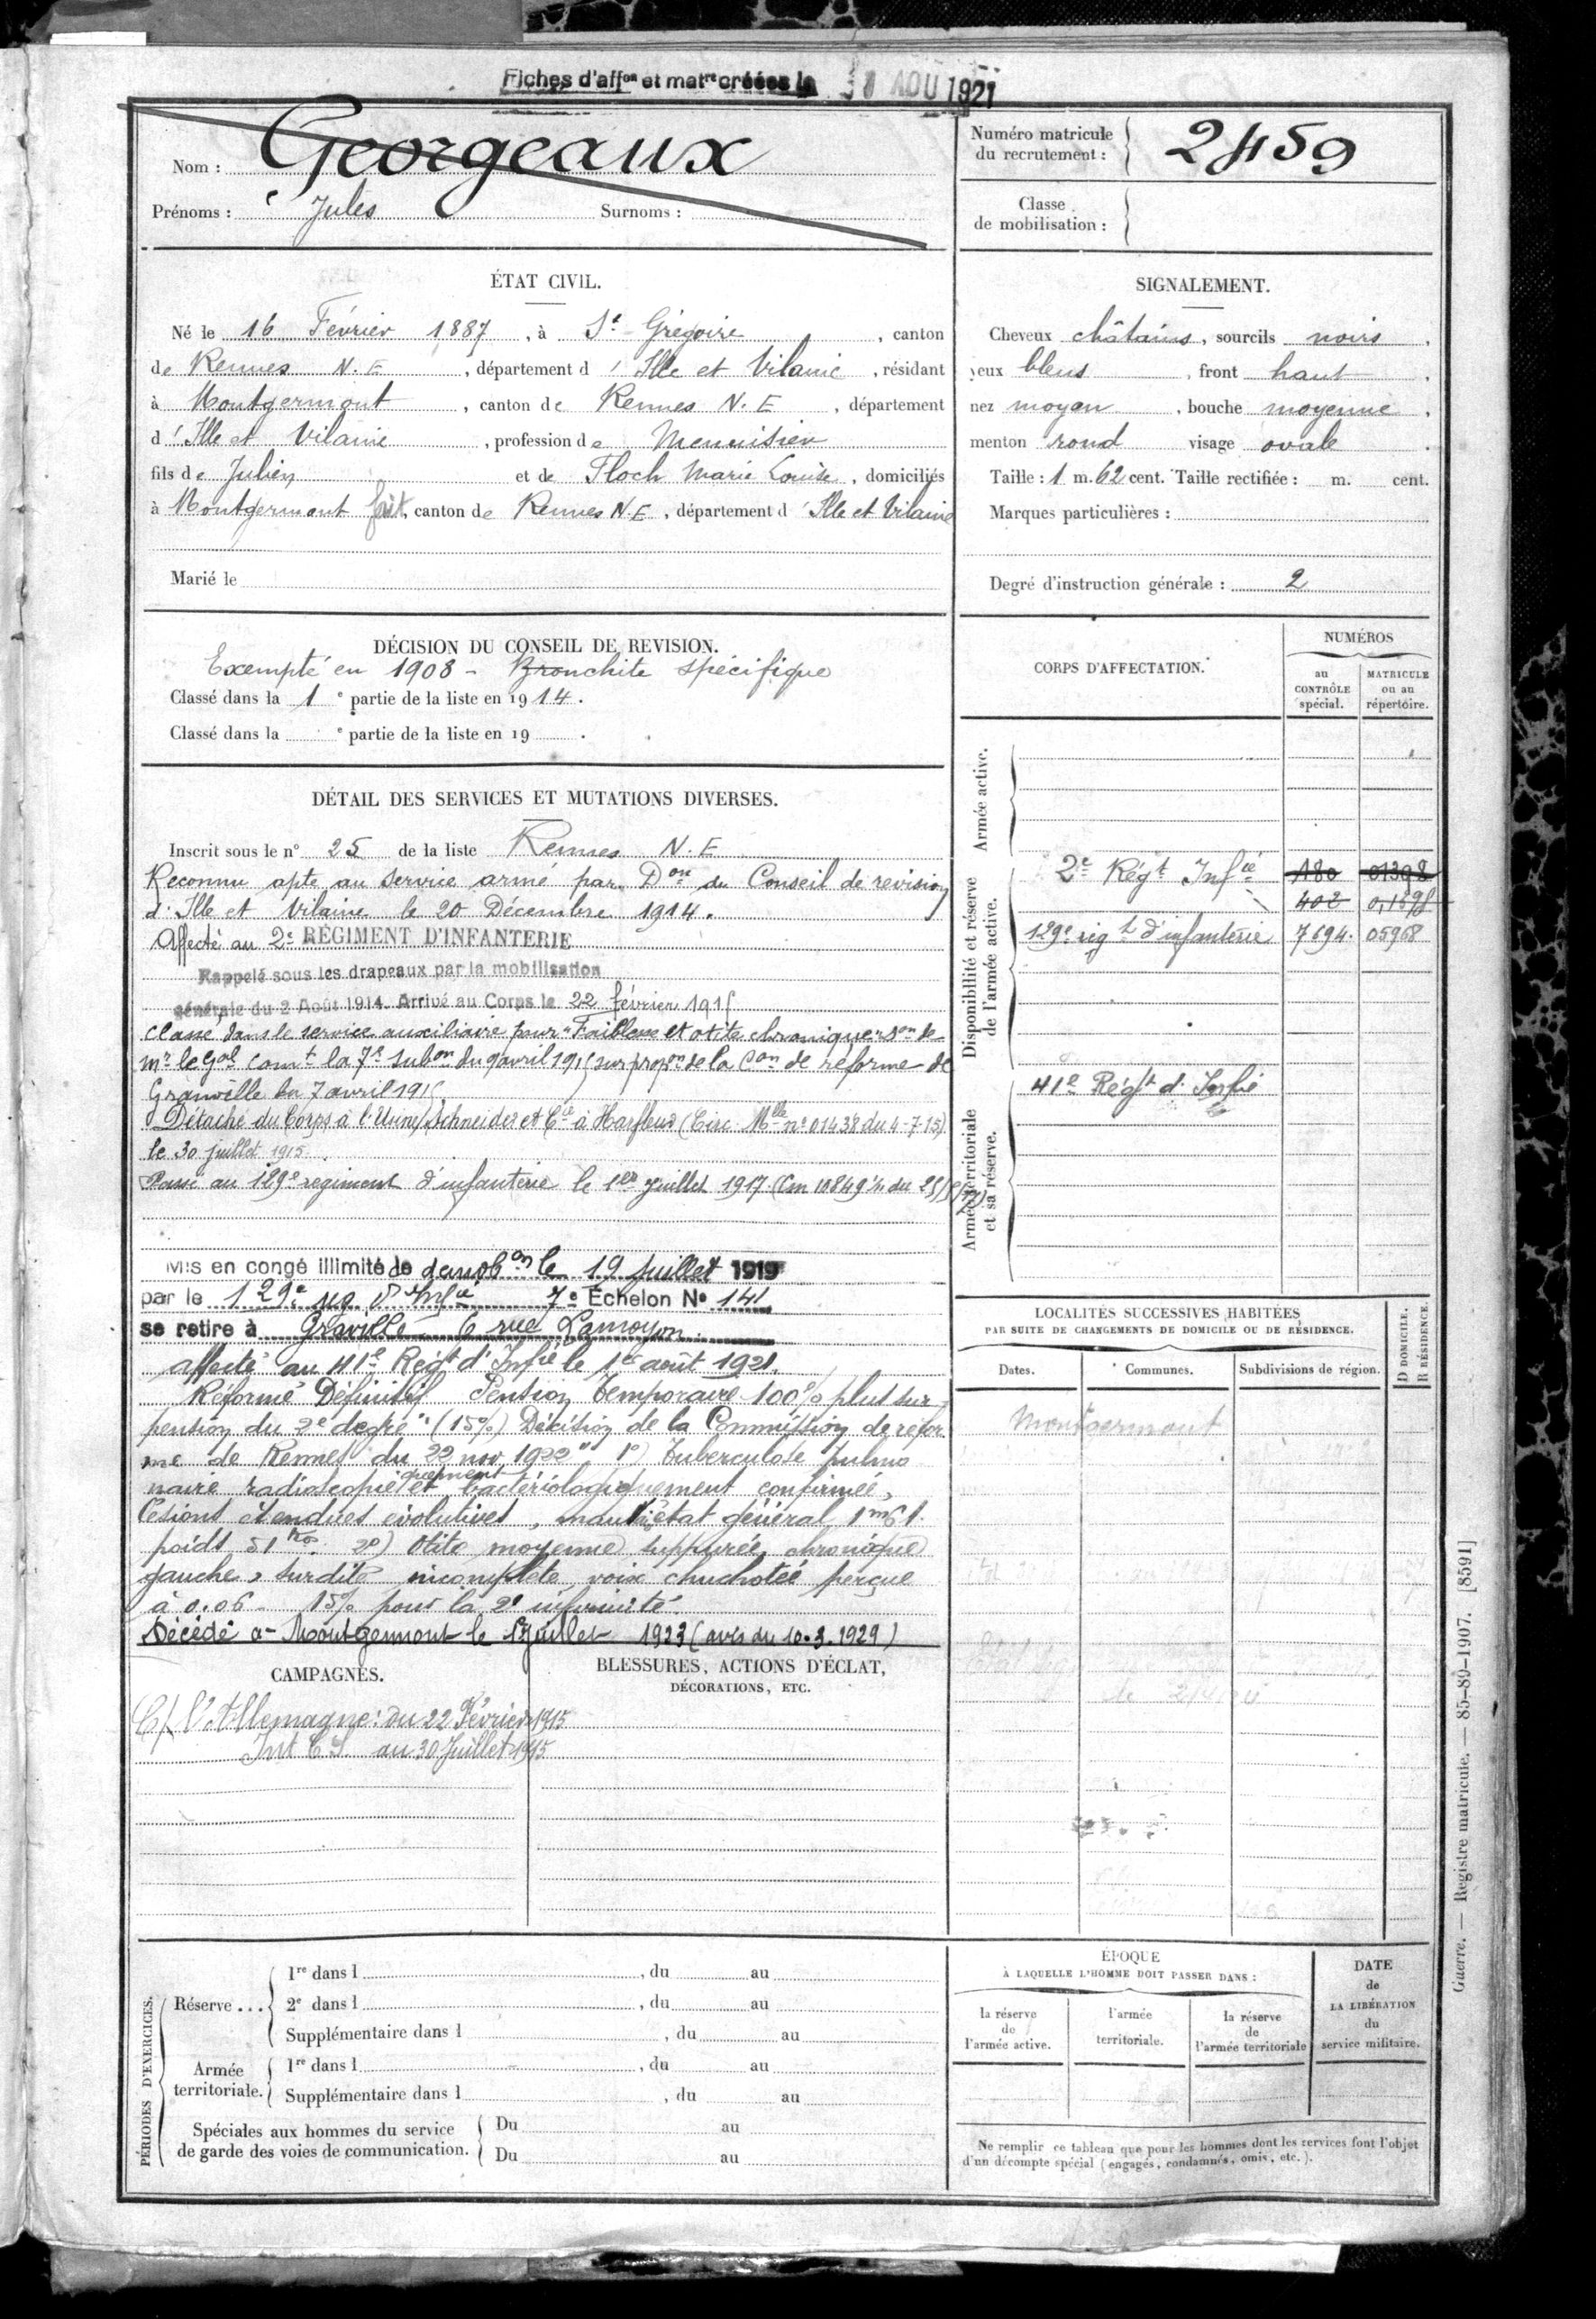 Fiches d'affon et matre créées le 30 AOU 1921
Nom : Georgeaux
Prénoms : Jules Surnoms :
Numéro matricule du recrutement : 2459
Classe de mobilisation :
ÉTAT CIVIL.
Né le 16 Février 1887, à St Grégoire, canton
de Rennes N.E, département d'Ille et Vilaine, résidant
à Montgermont, canton de Rennes N.E, département
d'Ille et Vilaine, profession de Menuisier
fils de Julien et de Floch Marie Louise, domiciliés
à Montgermont, canton de Rennes N.E, département d'Ille et Vilaine
Marié le
SIGNALEMENT.
Cheveux châtains, sourcils noirs,
yeux bleus, front haut,
nez moyen, bouche moyenne,
menton rond visage ovale.
Taille : 1 m. 62 cent. Taille rectifiée : m. cent.
Marques particulières :
Degré d'instruction générale : 2
DÉCISION DU CONSEIL DE REVISION.
Exempté en 1908 - Bronchite spécifique
Classé dans la 1e partie de la liste en 1914.
Classé dans la e partie de la liste en 19 .
DÉTAIL DES SERVICES ET MUTATIONS DIVERSES.
Inscrit sous le n° 25 de la liste Rennes N.E
Reconnu apte au service armé par Don du Conseil de revision
d'Ille et Vilaine le 20 Décembre 1914.
Affecté au 2e RÉGIMENT D'INFANTERIE
Rappelé sous les drapeaux par la mobilisation
générale du 2 Août 1914. Arrivé au Corps le 22 février 1915
Classé dans le service auxiliaire pour "Faiblesse et otite chronique" Don de
Mr le Gal Comt la 7e Subon du 9 avril 1915 sur propon de la Con de réforme de
Granville du 7 avril 1915.
Détaché du Corps à l'Usine Schneider et Cie à Harfleur (Circ. Mlle n° 01438 du 4-7-15)
le 30 juillet 1915.
Passé au 129e régiment d'infanterie le 1er Juillet 1917
Mis en congé illimité de démobon le 19 Juillet 1919
par le 129e rég d'Infie 7e Échelon N° 141
se retire à Graville 6 rue Lamoyon
affecté au 41e Régt d'Infie le 1er août 1921.
Réformé Définitif Pension temporaire 100% plus sur
pension du 2e degré (15%) Décision de la Commission de réfor
me de Rennes du 22 nov 1922 " 1°) Tuberculose pulmo
naire radioscopiquement et bactériologiquement confirmée,
lésions étendues évolutives, mauvais état général 1m61
poids 51 kos 2°) Otite moyenne suppurée chronique
gauche, surdité incomplète voix chuchotée perçue
à 0.06 - 15% pour la 2e infirmité.
Décédé à Montgermont le Juillet 1923 (avis du 10.3.1929)
CORPS D'AFFECTATION.
NUMÉROS
au CONTRÔLE spécial.
MATRICULE ou au répertoire.
Armée active.
Disponibilité et réserve de l'armée active.
2e Régt Infie 180 01398
402
129e régt d'infanterie 7694 05968
Armée territoriale et sa réserve.
41e Régt d'Infie
LOCALITÉS SUCCESSIVES HABITÉES
PAR SUITE DE CHANGEMENTS DE DOMICILE OU DE RÉSIDENCE.
Dates. Communes. Subdivisions de région. D DOMICILE. R RÉSIDENCE.
Montgermont
CAMPAGNES.
C/ l'Allemagne : du 22 Février 1915
Int C.S. au 30 Juillet 1915
BLESSURES, ACTIONS D'ÉCLAT,
DÉCORATIONS, ETC.
PÉRIODES D'EXERCICES.
Réserve...
1re dans l , du au
2e dans l , du au
Supplémentaire dans l , du au
Armée territoriale.
1re dans l , du au
Supplémentaire dans l , du au
Spéciales aux hommes du service
de garde des voies de communication.
Du au
Du au
ÉPOQUE
À LAQUELLE L'HOMME DOIT PASSER DANS :
la réserve de l'armée active.
l'armée territoriale.
la réserve de l'armée territoriale
DATE de LA LIBÉRATION du service militaire.
Ne remplir ce tableau que pour les hommes dont les services font l'objet
d'un décompte spécial (engagés, condamnés, omis, etc.).
Guerre. — Registre matricule. — 85-89-1907. [8591]